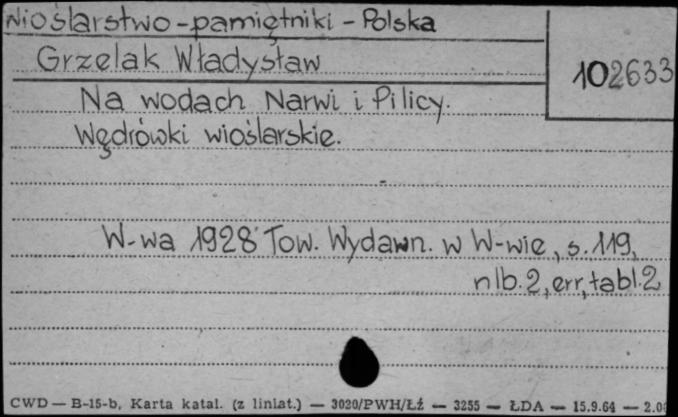 Wioślarstwo - pamiętniki - Polska
Grzelak Władysław
102633
Na wodach Narwi i Pilicy.
Wędrówki wioślarskie.
W-wa 1928 Tow. Wydawn. w W-wie, s. 119,
nlb. 2, err, tabl. 2
CWD — B-15-b, Karta katal. (z liniat.) — 3020/PWH/Łź — 3255 — ŁDA — 15.9.64 — 2.00